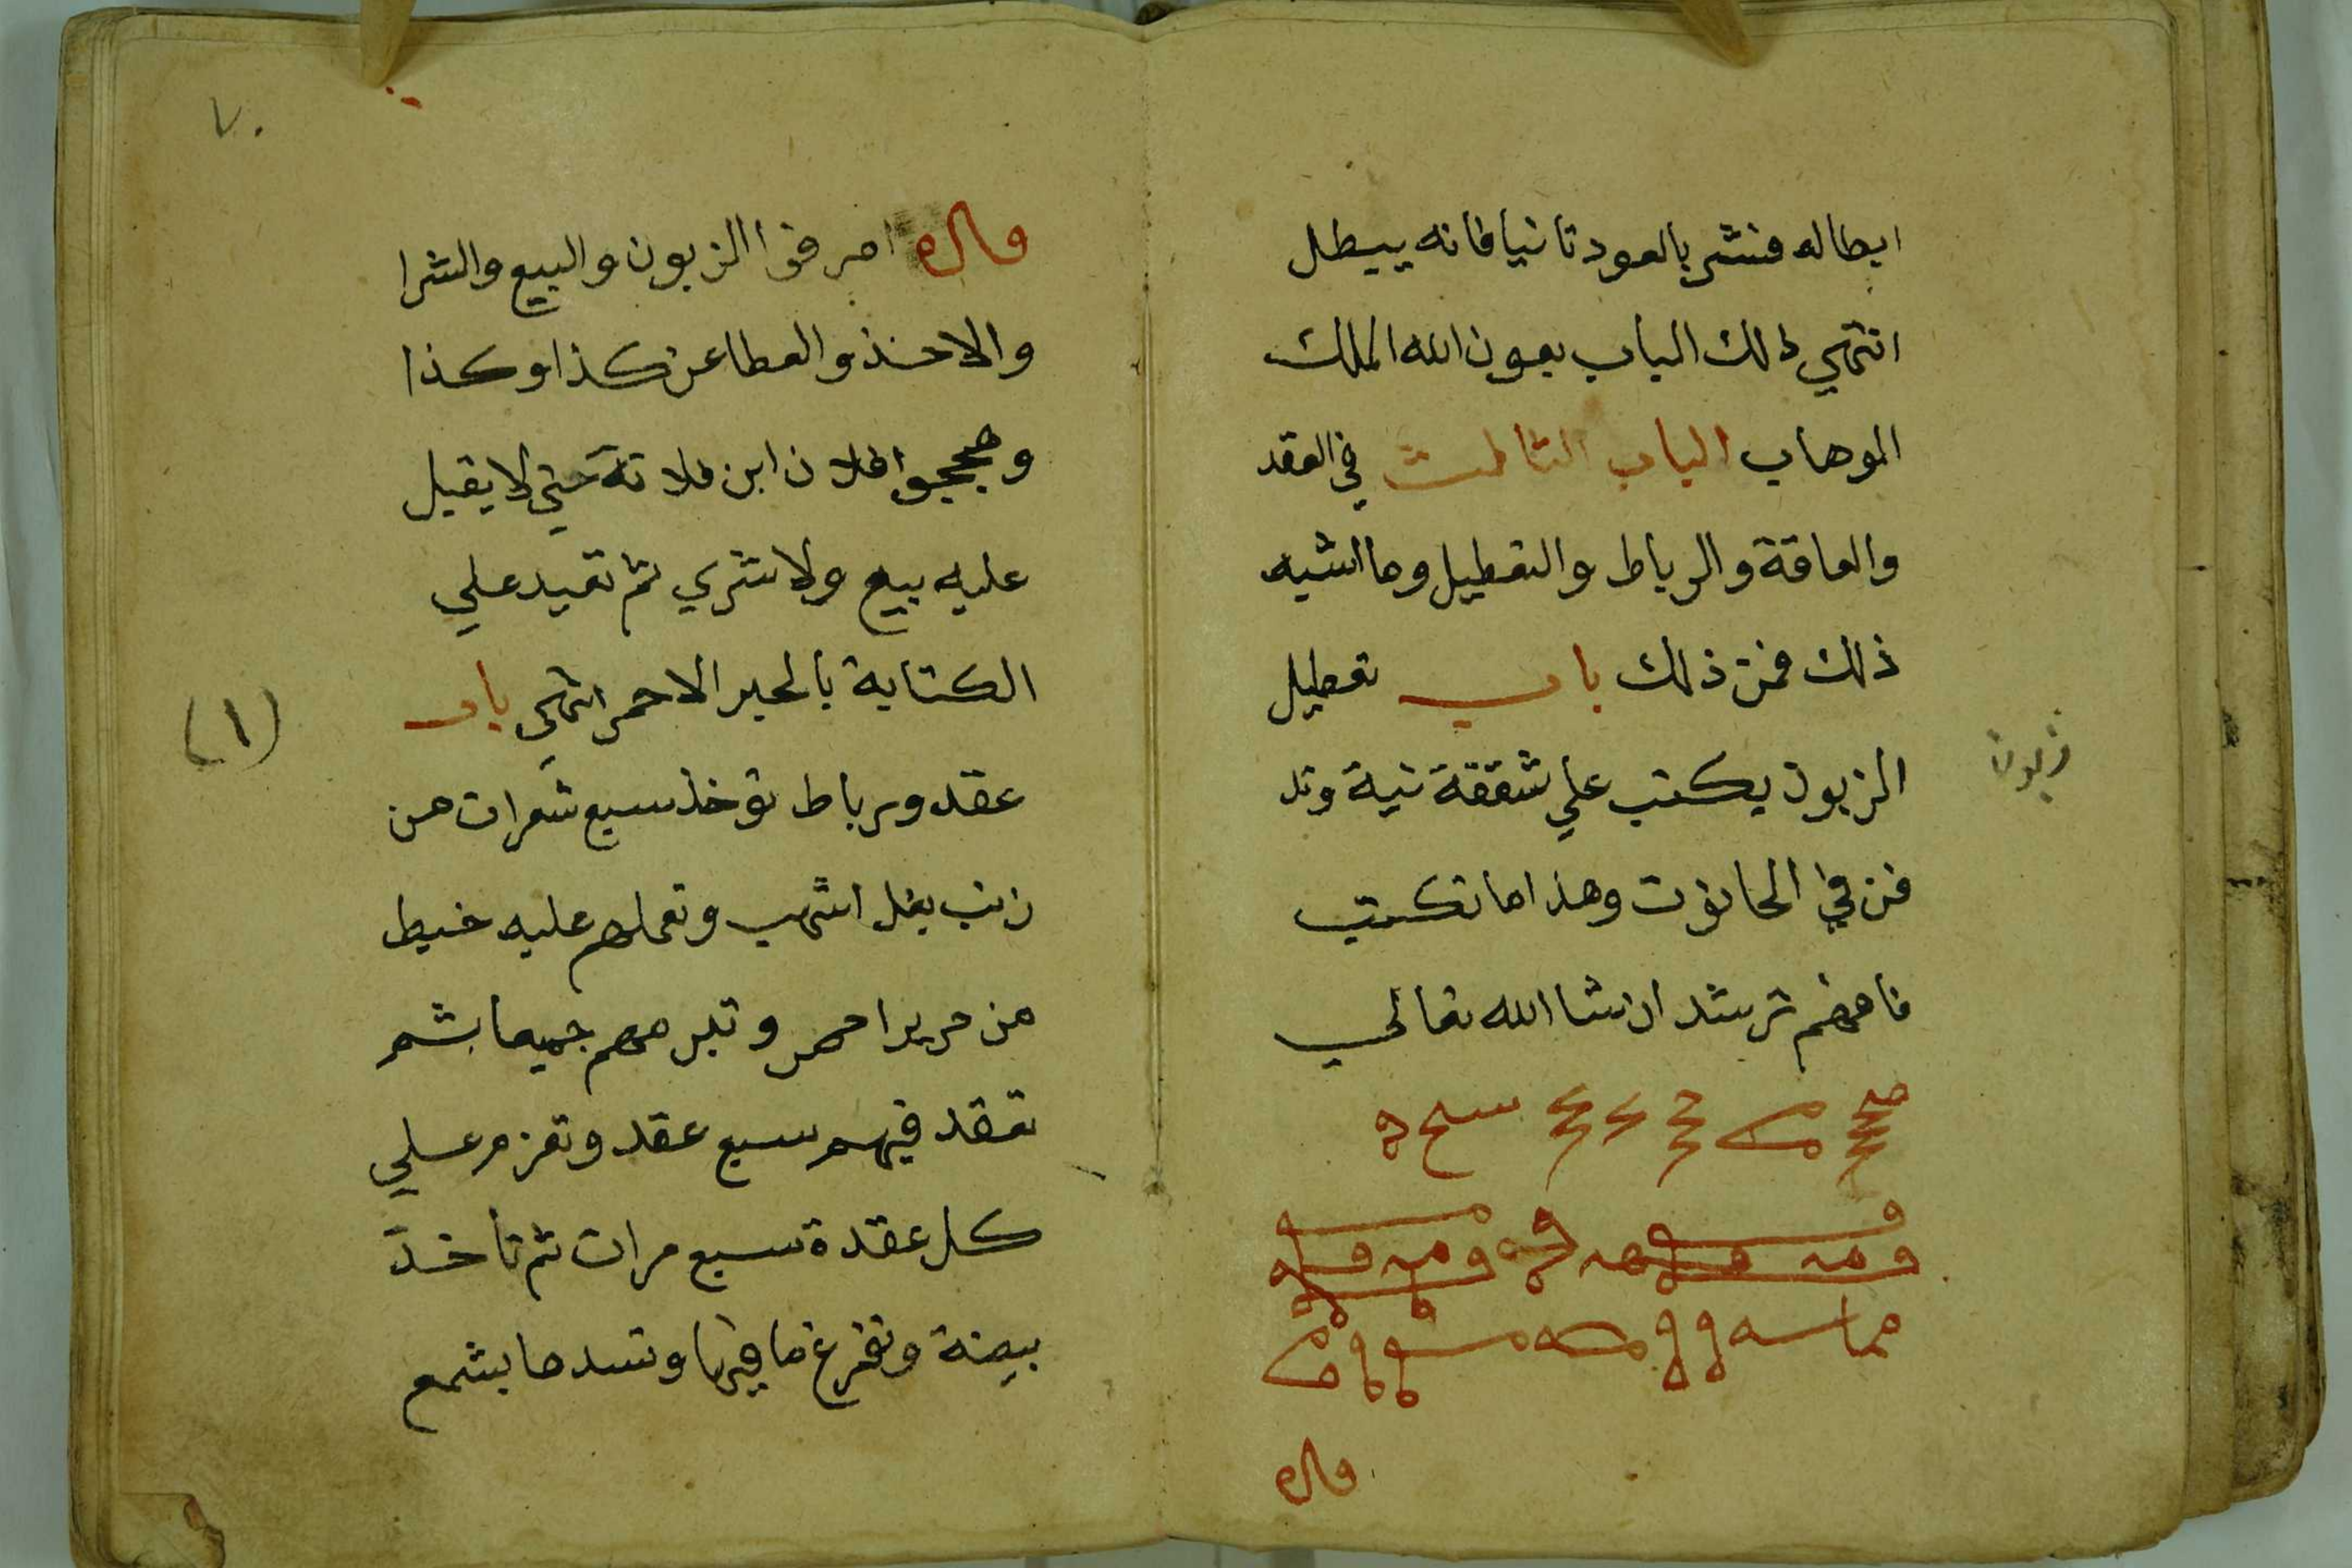 ابطاله فنشر بالعود ثانيا فانه يبطل
انتهي ذلك الباب بعون الله الملك
الوهاب الباب الثالث في العقد
والعاقة والرباط والتعطيل وما اشبه
ذلك فمن ذلك باب تعطيل
الزبون يكتب علي شقفة نية وتد
فن في الحانوت وهذا ما تكتب
فافهم ترشد ان شا الله تعالي
زبون
٧٠
اصرفوا الزبون والبيع والشرا
والاخذ والعطا عن كذا وكذا
وهججوا فلان ابن فلانة حتي لا يقبل
عليه بيع ولا شري ثم تعيد علي
الكتابة بالحبر الاحمر انتهي باب
(١)
عقد ورباط توخذ سبع شعرات من
زنب بغل اشهب وتعملهم عليه خيط
من حرير احمر وتبرمهم جميعا بشم
تعقد فيهم سبع عقد وتعزم علي
كل عقدة سبع مرات ثم تاخذ
بيضة وتفرغ ما فيها وتسدها بشمع